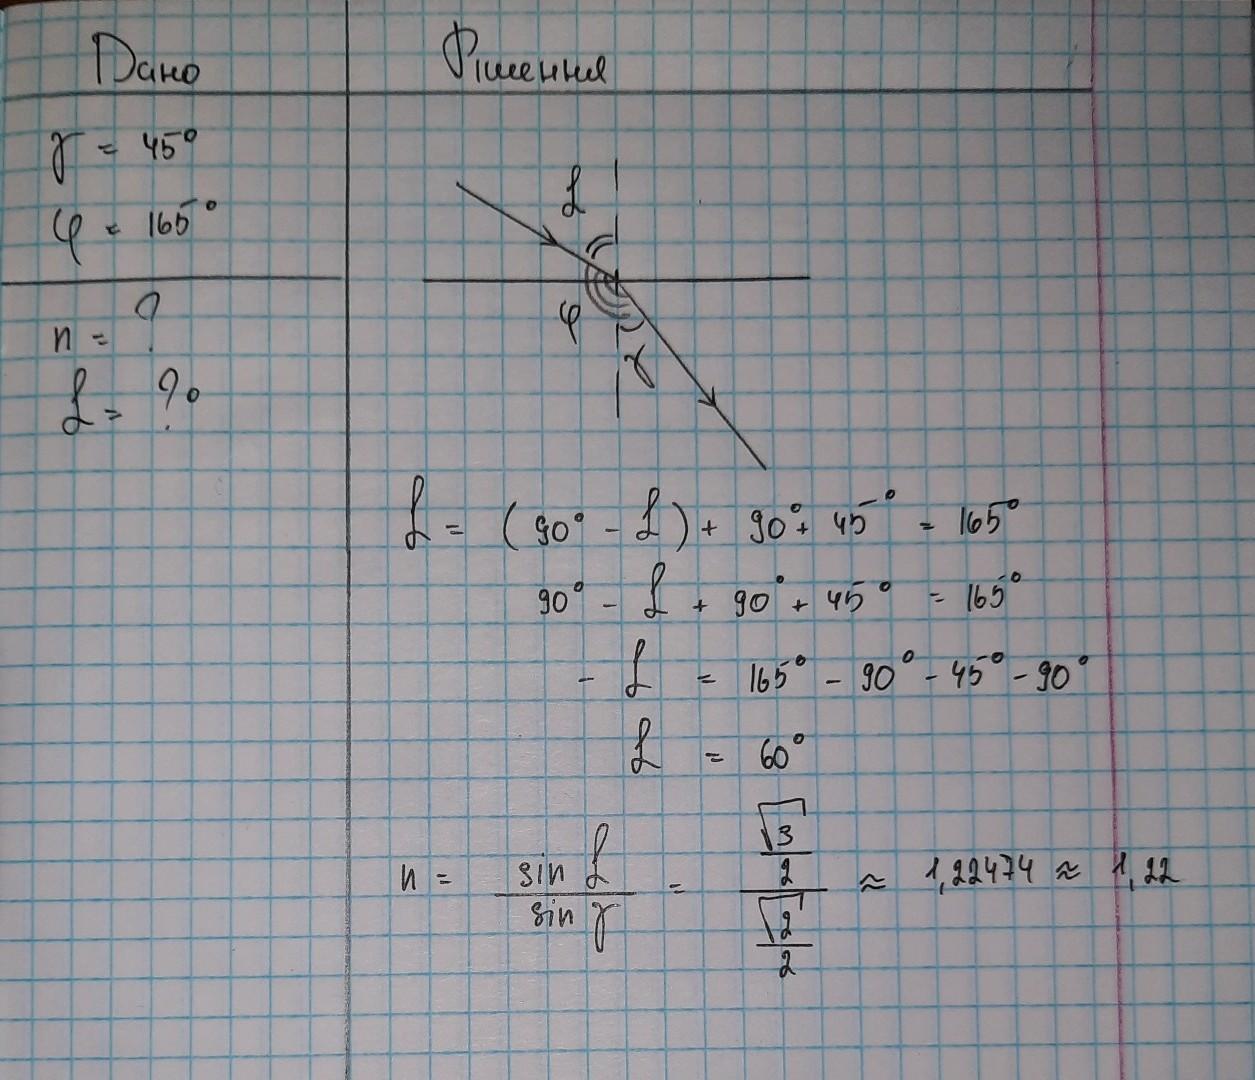 Дано
Рішення
γ = 45°
φ = 165°
n = ?
α = ?
α
φ
γ
α = (90° - α) + 90° + 45° = 165°
90° - α + 90° + 45° = 165°
- α = 165° - 90° - 45° - 90°
α = 60°
n = sin α / sin γ = (√3 / 2) / (√2 / 2) ≈ 1,22474 ≈ 1,22